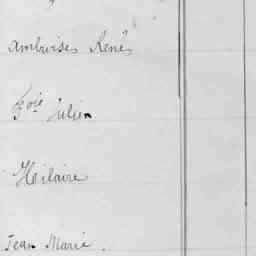 Ambroise René
Fois Julien
Hilaire
Jean Marie.